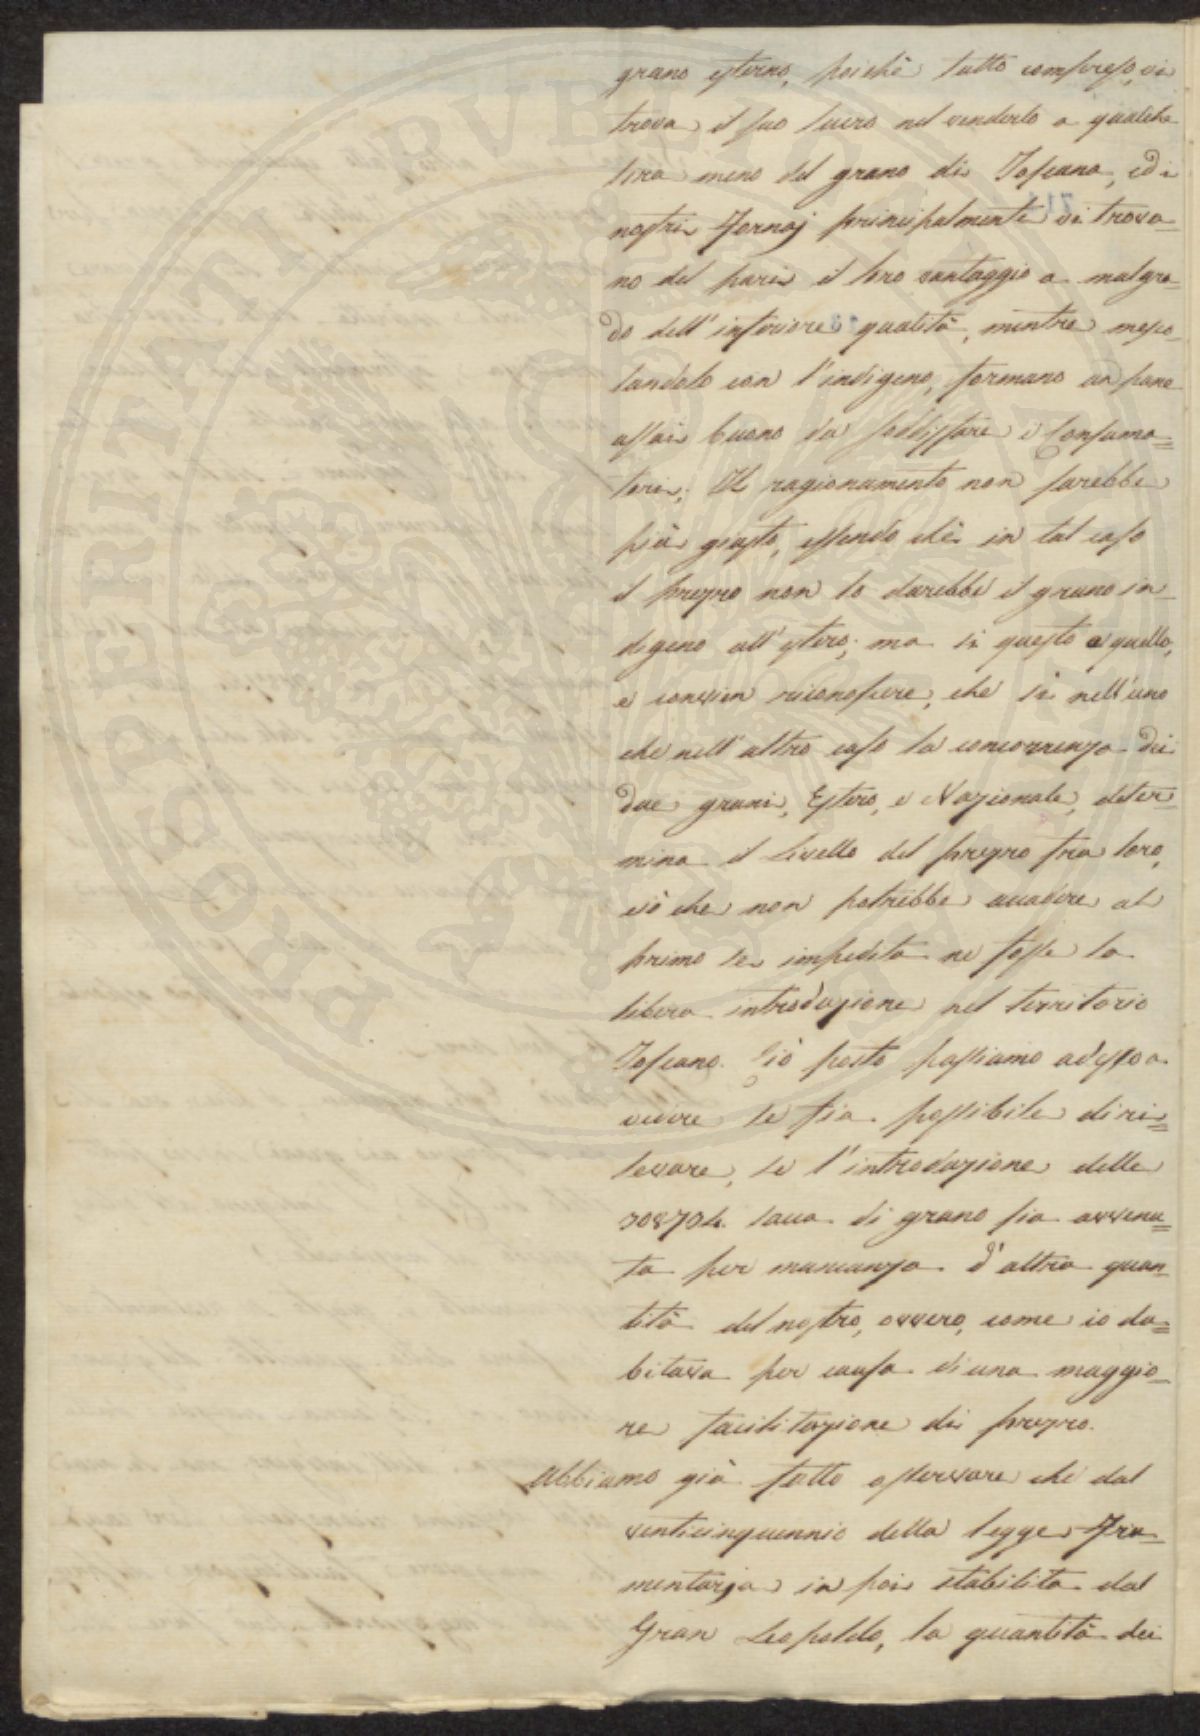 grano esterno, poichè tutto compreso, vi
trova il suo lucro nel venderlo a qualche
lira meno del grano di Toscana, ed i
nostri Fornaj principalmente vi trova-
no del pari il loro vantaggio a malgra-
do dell'inferiore qualità, mentre mesco-
landolo con l'indigeno, formano un pane
assai buono da soddisfare i Consuma=
tori; Il ragionamento non sarebbe
più giusto, essendo chè in tal caso
il prezzo non lo darebbe il grano in-
digeno all'estero; ma sì questo a quello,
e convien riconoscere, che sì nell'uno
che nell'altro caso la concorrenza dei
due grani, Estero, e Nazionale, deter-
mina il Livello del prezzo fra loro,
ciò che non potrebbe accadere al
primo se impedita ne fosse la
libera introduzione nel territorio
Toscano. Ciò posto passiamo adesso a
vedere se sia possibile di ri=
levare, se l'introduzione delle
308704 sacca di grano sia avvenu=
ta per mancanza d'altra quan-
tità del nostro, ovvero, come io du=
bitava per causa di una maggio-
re facilitazione di prezzo.
Abbiamo già fatto osservare che dal
venticinquennio della legge Fru-
mentaria in poi stabilita dal
Gran Leopoldo, la quantità dei
PROSPERITATI PVBLICAE